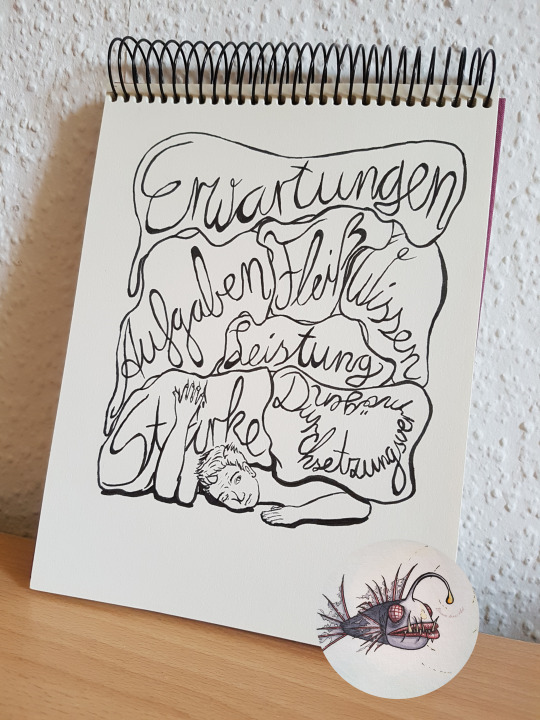 Erwartungen
Aufgaben Fleiß Wissen
Leistung
Stärke Durchsetzungsvermögen